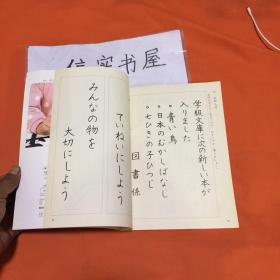 信实书屋
学級文庫に次の新しい本が
入りました
。青い鳥
。日本のむかしばなし
。七ひきの子ひつじ
図書係
ていねいにしよう
みんなの物を
大切にしよう